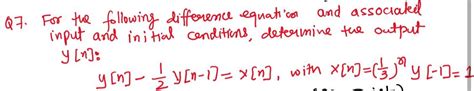 Q7. For the following difference equation and associated
input and initial conditions, determine the output
y[n]:
y[n] - 1/2 y[n-1] = x[n], with x[n] = (1/3)^n y[-1] = 1